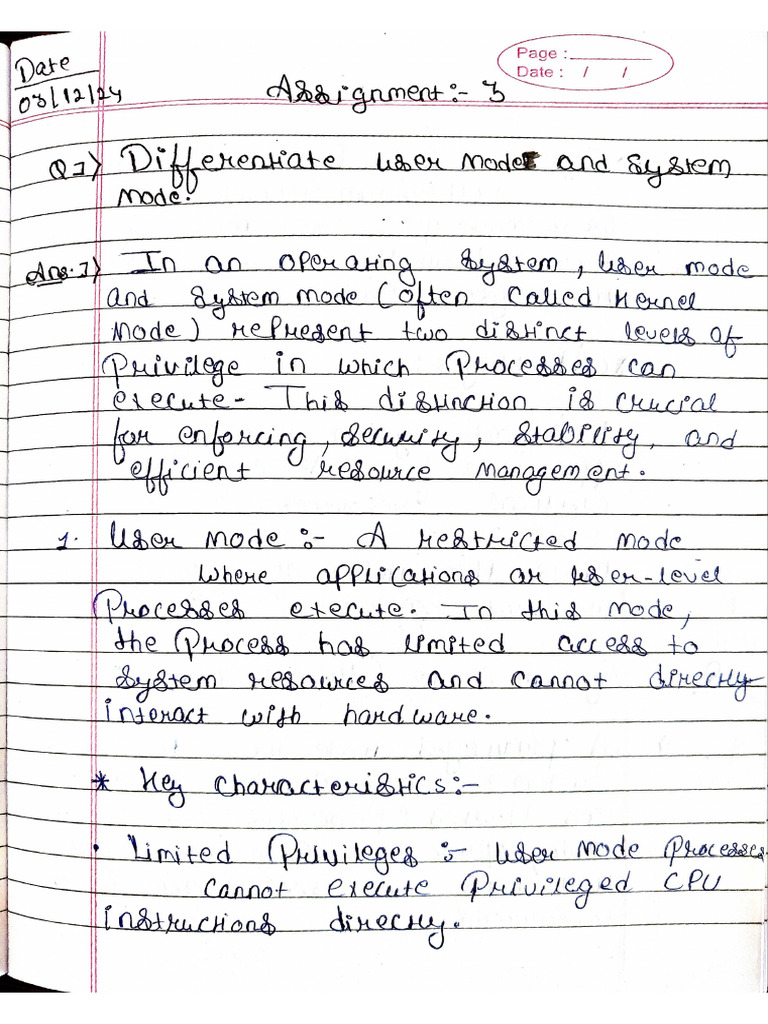 Page :
Date : / /
Date
03/12/24
Assignment:- 3
Q1) Differentiate user mode and system
mode.
Ans.1) In an operating system, user mode
and system mode (often called kernel
mode) represent two distinct levels of
Privilege in which Processes can
execute- This distinction is crucial
for enforcing, security, stability, and
efficient resource management.
1. User mode :- A restricted mode
where applications or user-level
Processes execute. In this mode,
the Process has limited access to
system resources and cannot directly
interact with hardware.
* Key characteristics:-
• Limited Privileges :- user mode Processes
cannot execute Privileged CPU
instructions directly.